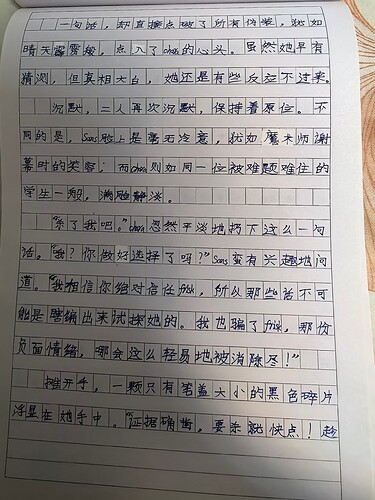 一句话，却直接点破了所有伪装，犹如
晴天霹雳般，点入了chara的心头。虽然她早有
猜测，但真相大白，她还是有些反应不过来。
沉默，二人再次沉默，保持着原位。不
同的是，Sans脸上是毫无冷意，犹如魔术师谢
幕时的笑容；而chara则如同一位被难题难住的
学生一般，满脸
“杀了我吧。”chara忽然平淡地抛下这么一句
话。“我？你做好选择了吗？”Sans蛮有兴趣地问
道。“我相信你绝对信任frisk，所以那些话不可
能是瞎编出来试探她的。我也骗了frisk，那份
负面情绪，哪会这么轻易地被消除尽！”
摊开手，一颗只有笔盖大小的黑色碎片
浮显在她手中。“证据确凿，要杀就快点！趁